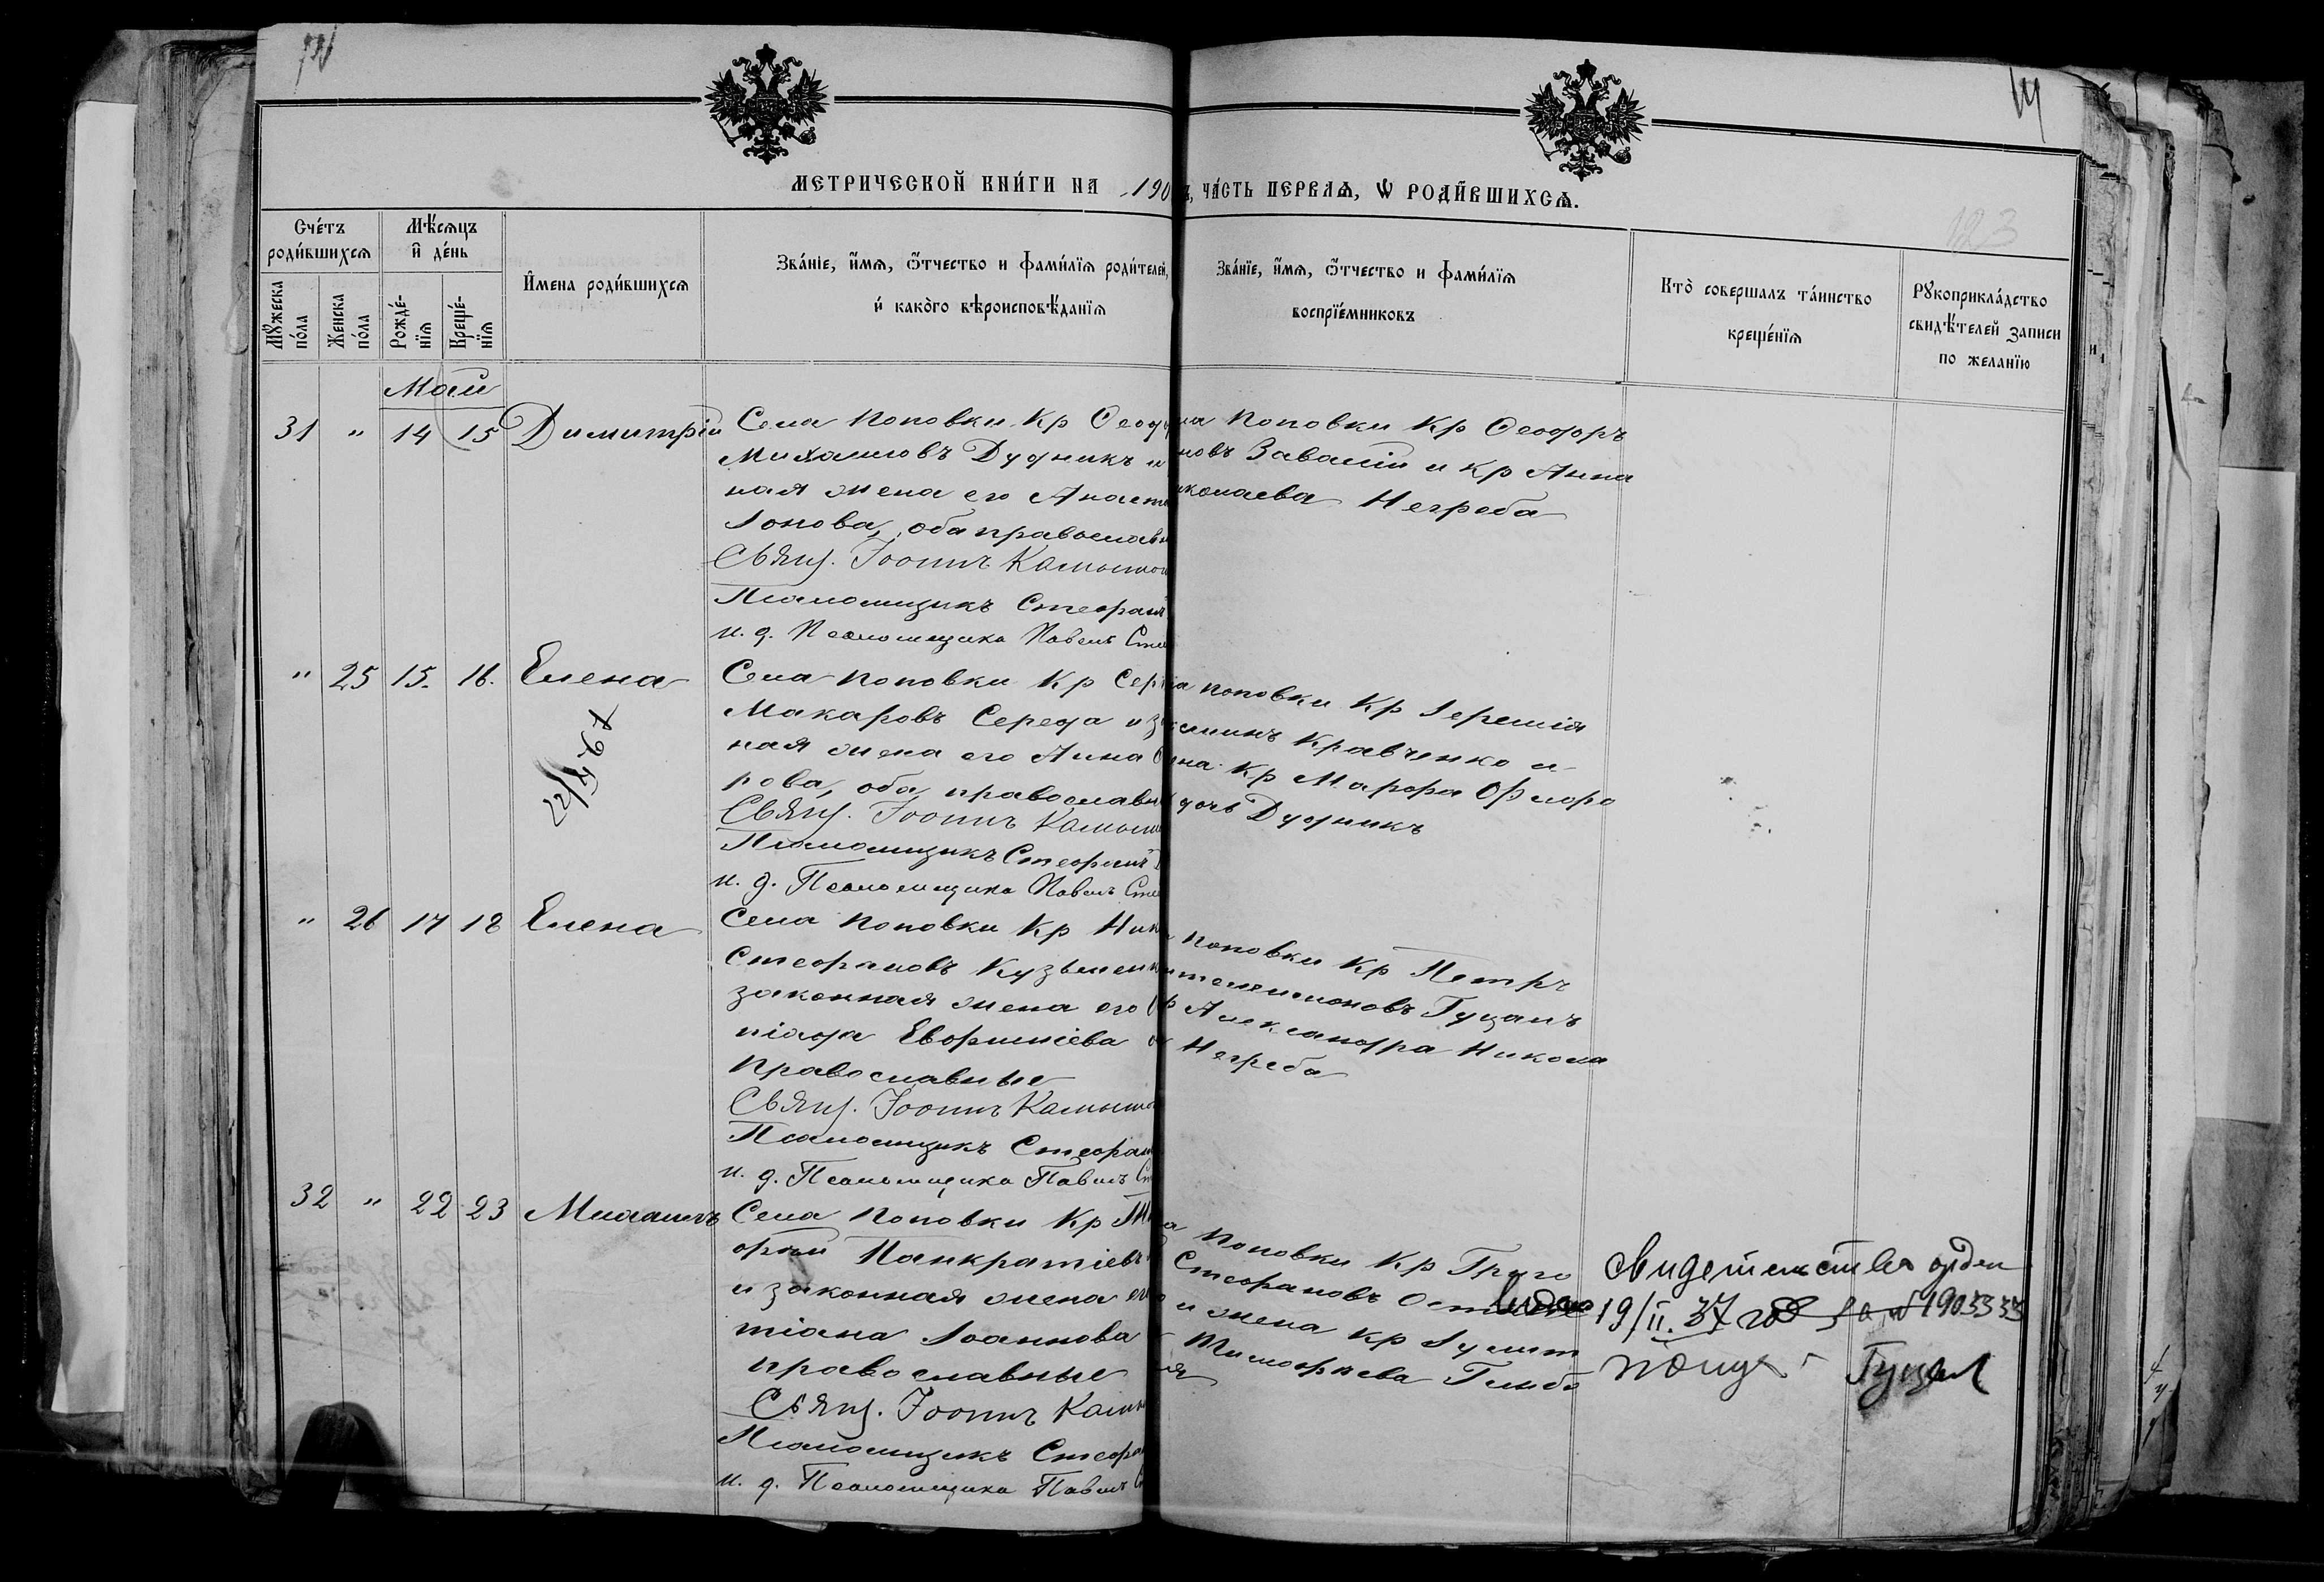 МЕТРИЧЕСКОЙ КНИ́ГИ НА 190
ЧА́СТЬ ПЕРВАѦ, Ѡ РОДИ́ВШИХСѦ.
123
Сче́тъ родившихсѧ
Мѣсѧцъ и де́нь
Мꙋжеска по́ла
Женска по́ла
Рожде́-нїѧ
Креще́-нїѧ
Имена роди́вшихсѧ
Зва́нїе, имѧ, ѻтчество и фамилїѧ роди́телей,
и како́гѡ вѣроисповѣданїѧ
Зва́нїе, имѧ, ѻтчество и фамилїѧ
воспрїе́мниковъ
Кто̀ совершалъ та́инство
креще́нїѧ
Рꙋкоприкла́дство
свидѣтелей записи
по желанїю
Май
31 " 14 15 Димитрій
Села Поповки Кр Ѳеод
Михаиловъ Дудникъ и
ная жена его Анаст
Іонова, оба православн
Свящ. Іоаннъ Камыш
Псаломщикъ Стефанъ
и. д. Псаломщика Павелъ Сте
ла Поповки Кр Ѳеодоръ
новъ Завалій и Кр Анна
иколаева Негреба
" 25 15. 16. Елена
22/II 67
Села Поповки Кр Серг
Макаровъ Середа и за
ная жена его Анна Ѳ
рова, оба православн
Свящ. Іоаннъ Камыш
Псаломщикъ Стефанъ
и. д. Псаломщика Павелъ Сте
ла Поповки Кр Іеремія
Кравченко и
на Кр Марѳа Флоро
дочь Дудникъ
" 26 17 18 Елена
Села Поповки Кр Ник
Стефановъ Кузьменк
законная жена его
Евфиміева
православные
Свящ. Іоаннъ Камыш
Псаломщикъ Стефан
и. д. Псаломщика Павелъ Ст
Поповки Кр Петръ
нтелеимоновъ Гуцанъ
р Александра Никола
Негреба
32 " 22 23 Михаилъ
Села Поповки Кр Ти
офей Панкратіевъ
и законная жена ег
тіана Іоаннова
православные
Свящ. Іоаннъ Камы
Псаломщикъ Стефа
и. д. Псаломщика Павелъ С
а Поповки Кр Григо
Стефановъ
и жена Кр Іулит
Тимофеева
ия
Свидетельство
19/II. 37 № 1903333